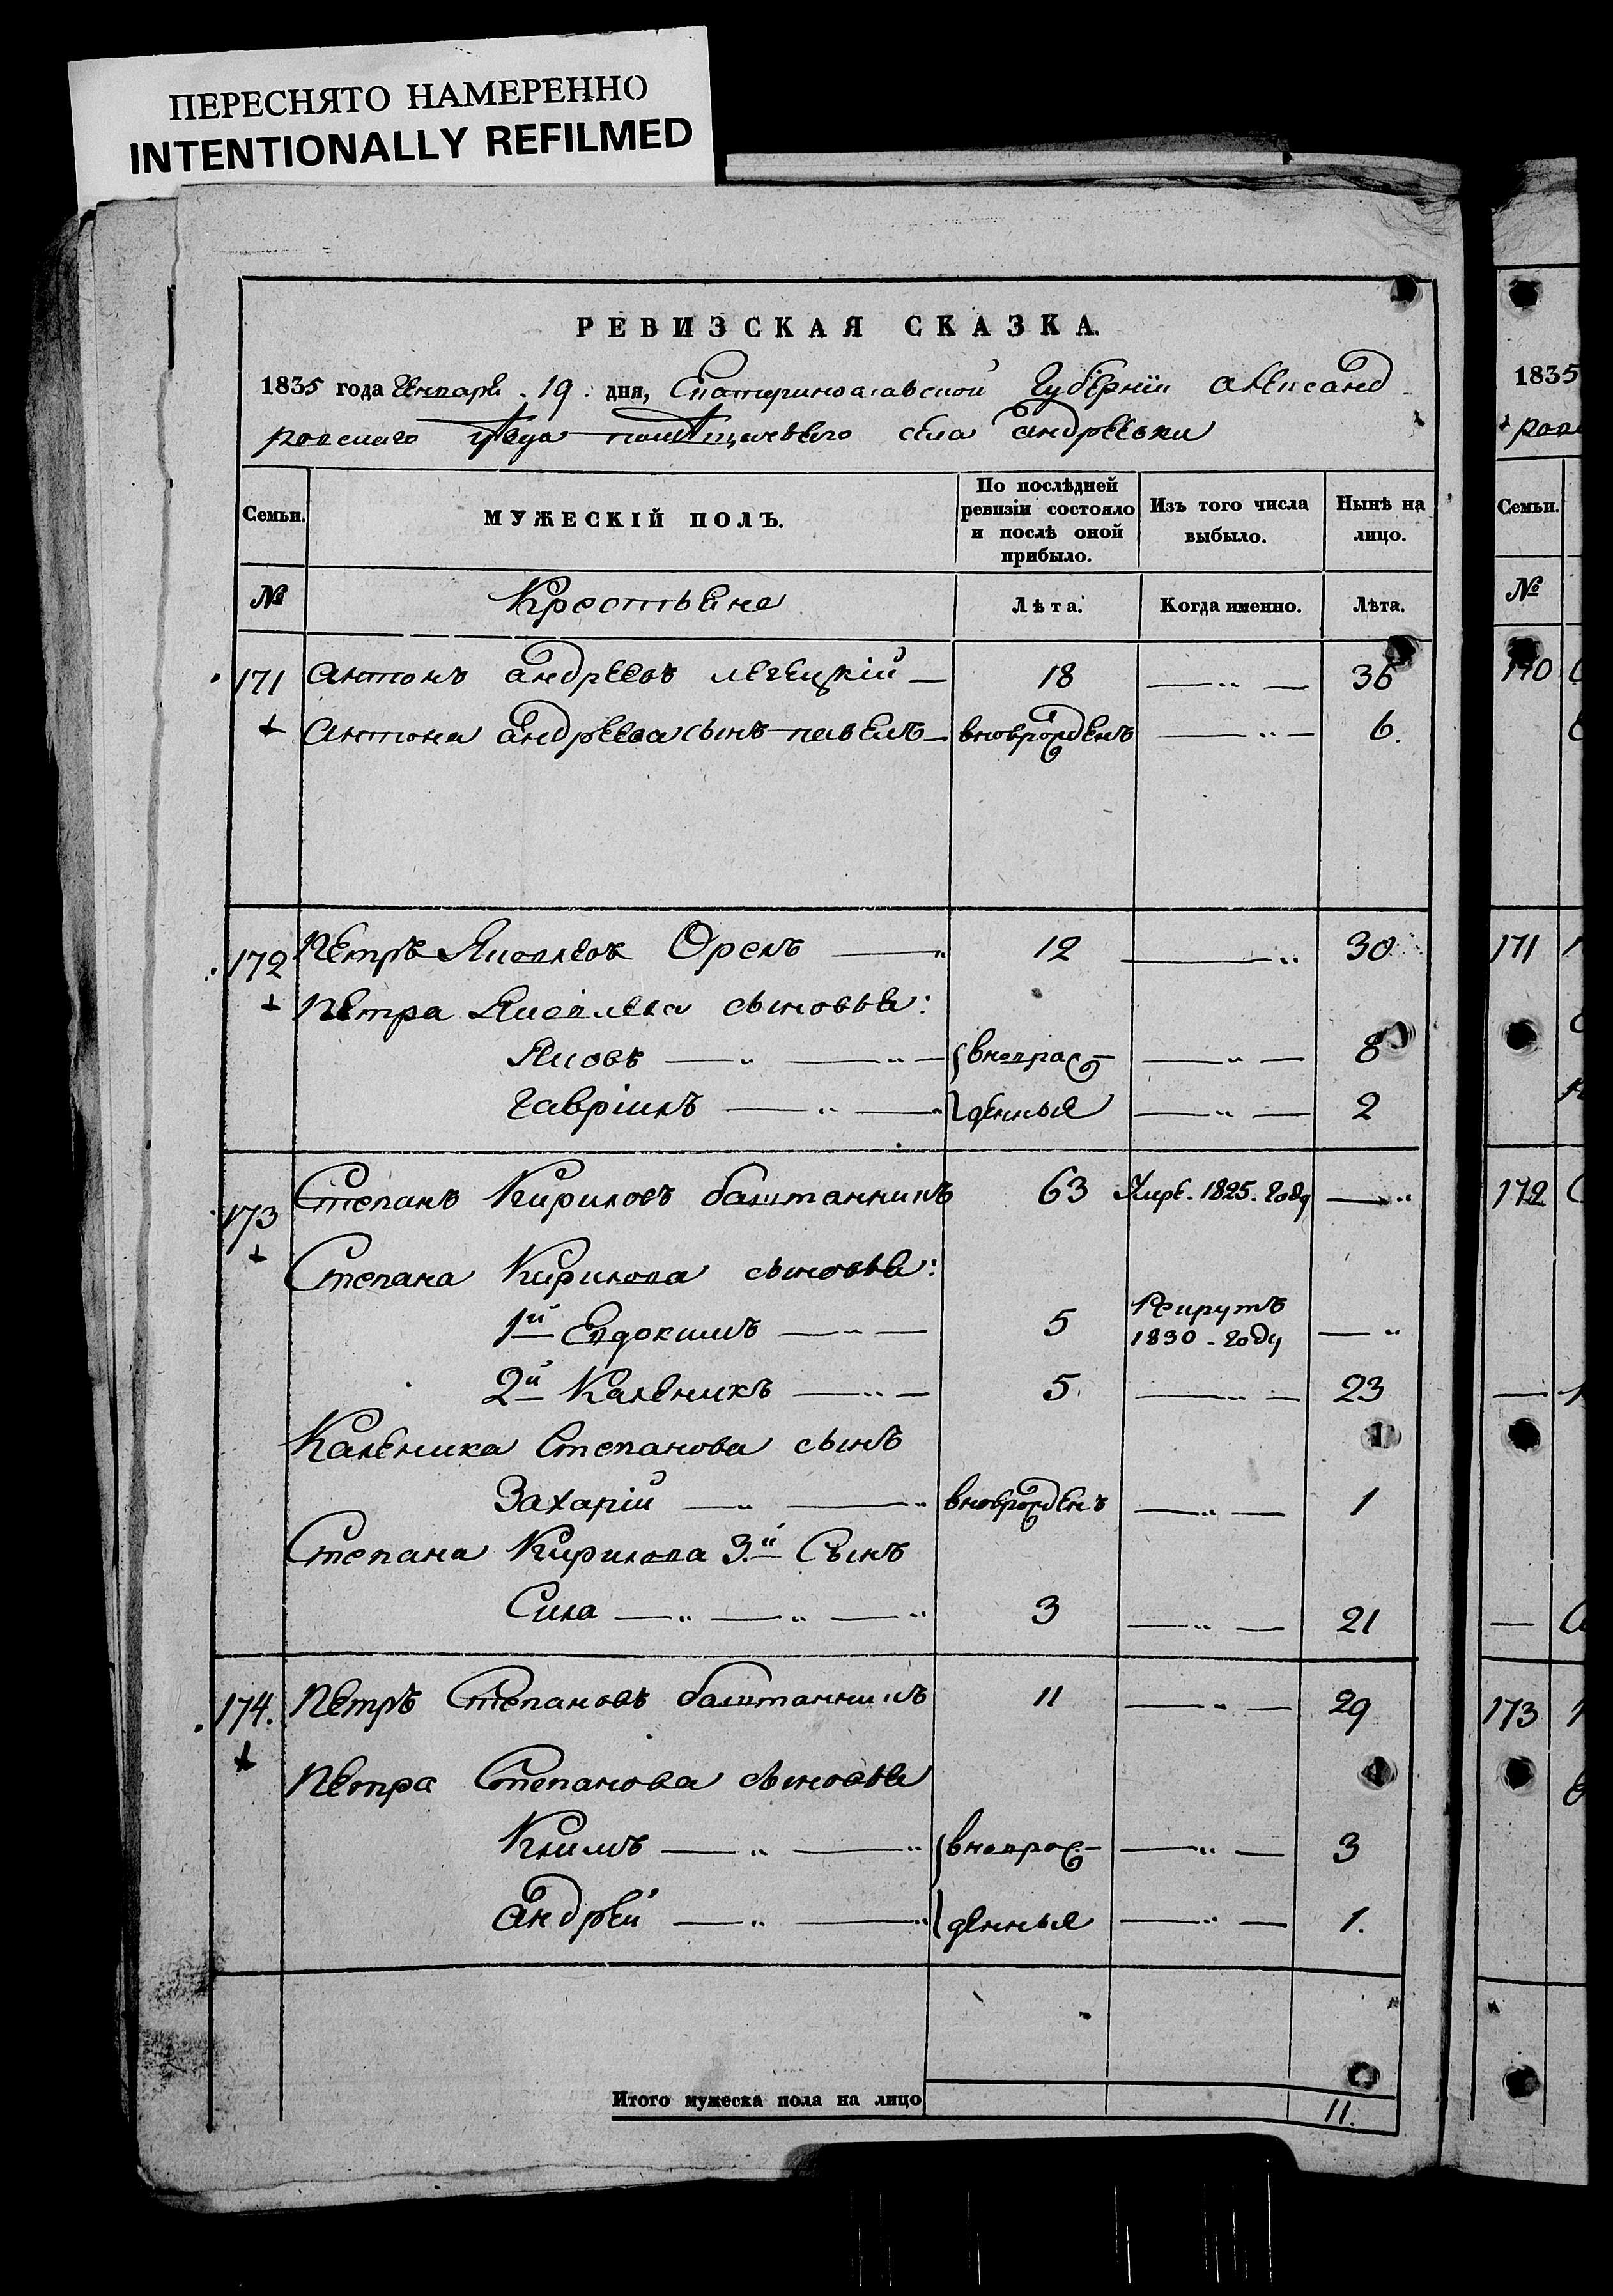 ПЕРЕСНЯТО НАМЕРЕННО
INTENTIONALLY REFILMED
РЕВИЗСКАЯ СКАЗКА.
1835 года Генваря . 19 . дня, Екатеринославской Губерніи Александ
ровскаго уѣзда помѣщичьяго села Андреевки
Семьи.
МУЖЕСКІЙ ПОЛЪ.
По послѣдней
ревизіи состояло
и послѣ оной
прибыло.
Изъ того числа
выбыло.
Нынѣ на
лицо.
№ Крестьяне Лѣта. Когда именно. Лѣта.
171 Антонъ Андреевъ Легецкій — 18 — „ — 36
Антона Андреева сынъ Павелъ — вноврожденъ — „ — 6.
172 Петръ Яковлевъ Орелъ — „ 12 — „ 30
Петра Яковлева сыновья:
Яковъ — „ — „ — вновраж — „ — 8
Гавріилъ — „ — „ денныя — „ — 2
173 Степанъ Кириловъ Баштанникъ 63 Умре. 1825. году — „
Степана Кирилова сыновья:
1й Евдокимъ — „ — 5 Рекрутъ 1830 . году — „
2й Каленикъ — „ — 5. — „ — 23
Каленика Степанова сынъ
Захарій — „ — „ вноврожденъ — „ — 1
Степана Кирилова 3.й Сынъ
Сила — „ — „ — „ 3 — „ — 21
174. Петръ Степановъ Баштанникъ 11 — „ — 29
Петра Степанова сыновья
Климъ — „ — „ вноврож — „ — 3
Андрей — „ — „ денныя — „ — 1.
Итого мужеска пола на лицо 11.
1835
ров
Семьи.
№
170
171
172
173